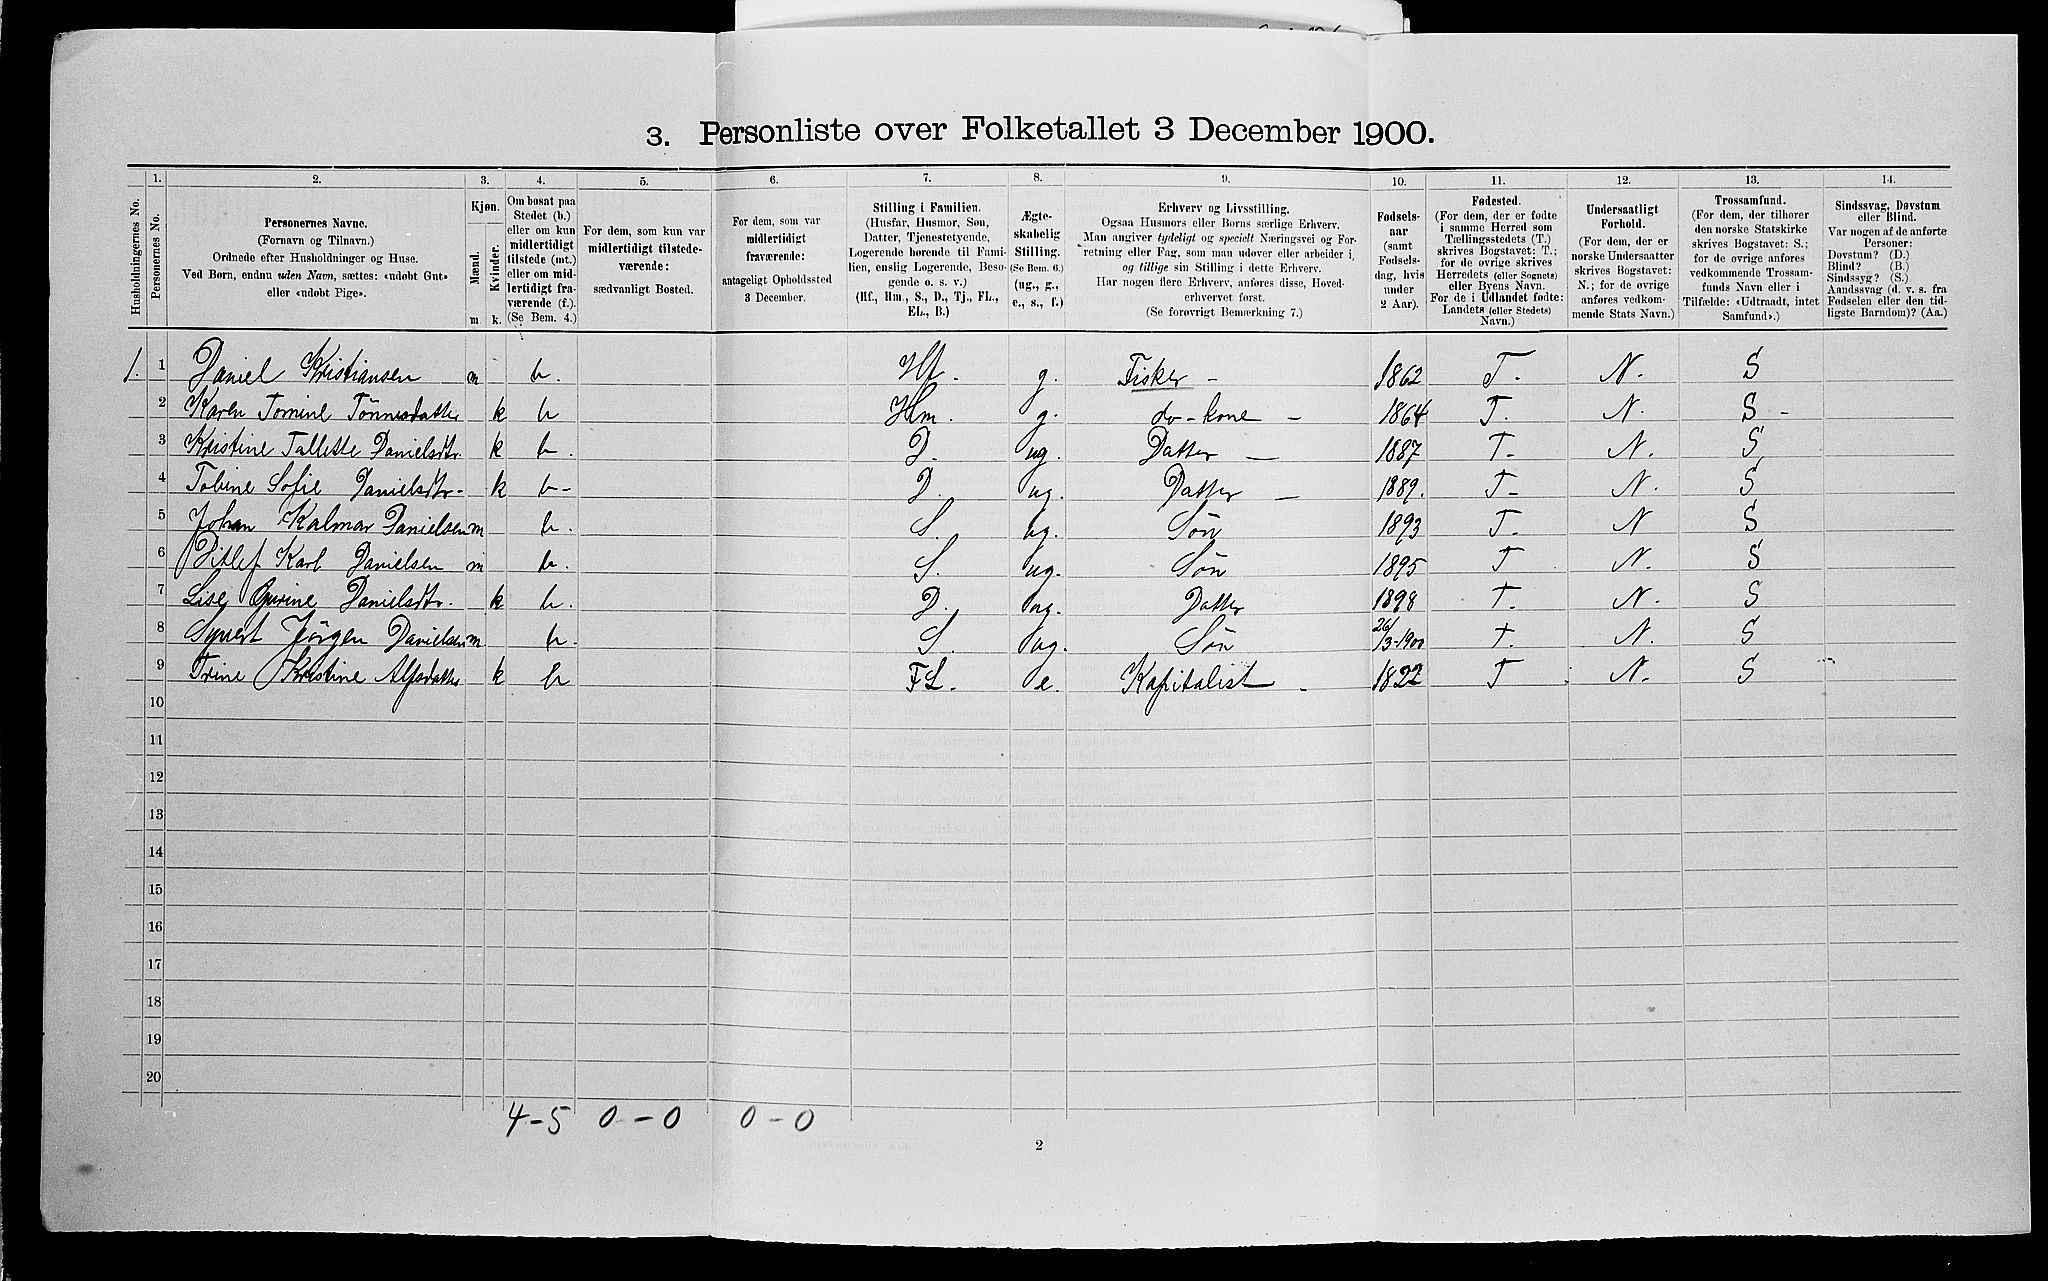 3. Personliste over Folketallet 3 December 1900.
1. 2. 3. 4. 5. 6. 7. 8. 9. 10. 11. 12. 13. 14.
Husholdningernes No.
Personernes No.
Personernes Navne.
(Fornavn og Tilnavn.)
Ordnede efter Husholdninger og Huse.
Ved Børn, endnu uden Navn, sættes: «udøbt Gut»
eller «udøbt Pige».
Kjøn.
Mænd.
Kvinder.
m. k.
Om bosat paa
Stedet (b.)
eller om kun
midlertidigt
tilstede (mt.)
eller om mid-
lertidigt fra-
værende (f.).
(Se Bem. 4.)
For dem, som kun var
midlertidigt tilstede-
værende:
sædvanligt Bosted.
For dem, som var
midlertidigt
fraværende:
antageligt Opholdssted
3 December.
Stilling i Familien.
(Husfar, Husmor, Søn,
Datter, Tjenestetyende,
Logerende hørende til Fami-
lien, enslig Logerende, Besø-
gende o. s. v.)
(Hf., Hm., S., D., Tj., FL.,
EL., B.)
Ægte-
skabelig
Stilling.
(Se Bem. 6.)
(ug., g.,
e., s., f.)
Erhverv og Livsstilling.
Ogsaa Husmors eller Børns særlige Erhverv.
Man angiver tydeligt og specielt Næringsvei og For-
retning eller Fag, som man udøver eller arbeider i,
og tillige sin Stilling i dette Erhverv.
Har nogen flere Erhverv, anføres disse, Hoved-
erhvervet først.
(Se forøvrigt Bemærkning 7.)
Fødsels-
aar
(samt
Fødsels-
dag, hvis
under
2 Aar).
Fødested.
(For dem, der er fødte
i samme Herred som
Tællingsstedets (T.)
skrives Bogstavet: T.;
for de øvrige skrives
Herredets (eller Sognets)
eller Byens Navn.
For de i Udlandet fødte:
Landets (eller Stedets)
Navn.)
Undersaatligt
Forhold.
(For dem, der er
norske Undersaatter
skrives Bogstavet:
N.; for de øvrige
anføres vedkom-
mende Stats Navn.)
Trossamfund.
(For dem, der tilhører
den norske Statskirke
skrives Bogstavet: S.;
for de øvrige anføres
vedkommende Trossam-
funds Navn eller i
Tilfælde: «Udtraadt, intet
Samfund».)
Sindssvag, Døvstum
eller Blind.
Var nogen af de anførte
Personer:
Døvstum? (D.)
Blind? (B.)
Sindssyg? (S.)
Aandssvag (d. v. s. fra
Fødselen eller den tid-
ligste Barndom)? (Aa.)
1. 1 Daniel Kristiansen m b. Hf. g. Fisker - 1862 T. N. S
2 Karen Tomine Tönnesdatter k b Hm. g. do-kone - 1864 T. N S -
3 Kristine Tallette Danielsdtr. k b. D. ug. Datter - 1887 T- N. S
4 Tobine Sofie Danielsdtr- k b- D. ug. Datter - 1889. T- N. S
5 Johan Kalmar Danielsen m b. S. ug. Søn 1893 T- N S
6 Ditlef Karl Danielsen m b. S. ug. Søn 1895 T N. S
7 Lise Gurine Danielsdtr. k b. D. ug. Datter 1898 T. N. S
8 Syvert Jörgen Danielsen m b. S. ug. Søn 26/3-1900 T. N. S
9 Trine Kristine Alfsdatter k b FL. e. Kapitalist - 1822 T N. S
10
11
12
13
14
15
16
17
18
19
20
4-5 0-0 0-0
2